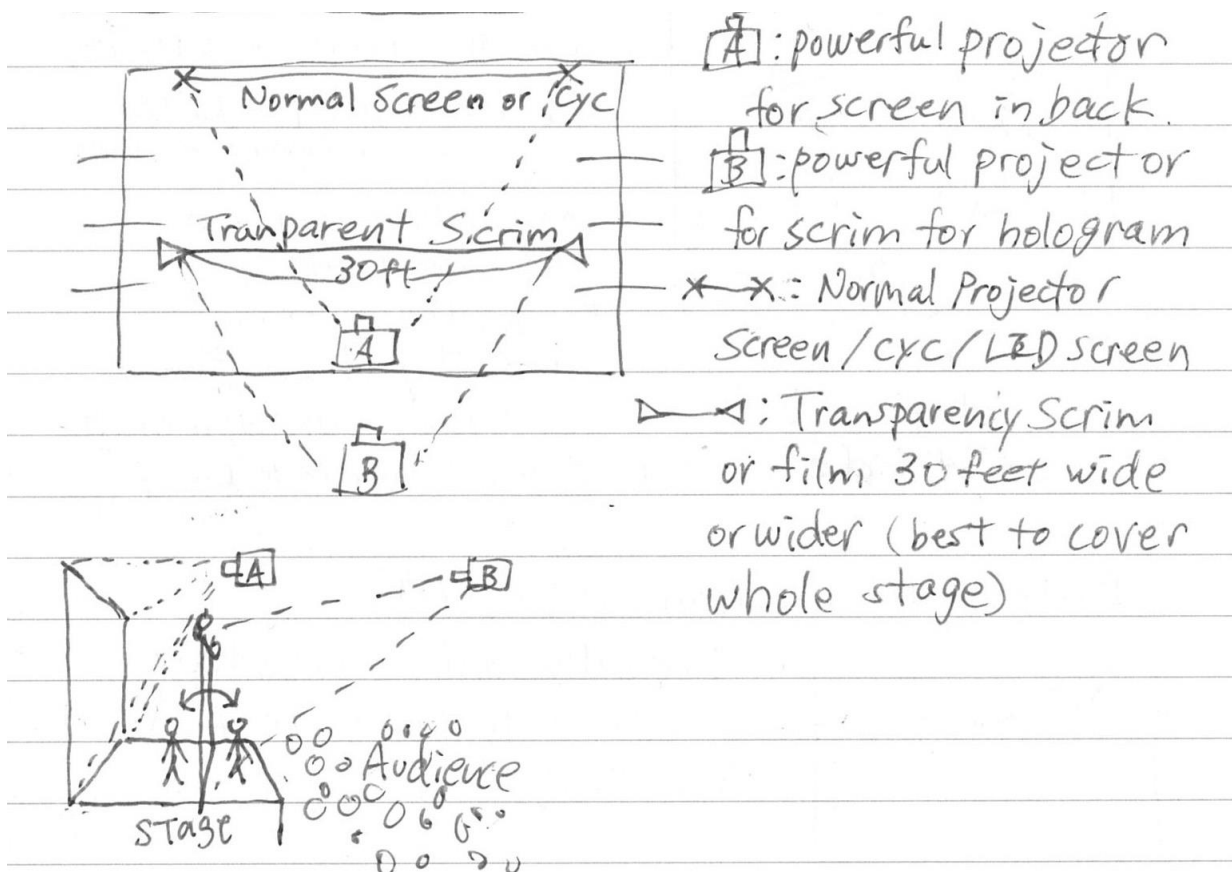 Normal Screen or Cyc
Tranparent Scrim
30ft
A
B
A: powerful projector
for screen in back.
B: powerful projector
for scrim for hologram
x—x: Normal Projector
Screen/cyc/LED screen
▷—◁: Transparency Scrim
or film 30 feet wide
or wider (best to cover
whole stage)
A
B
Audience
STage